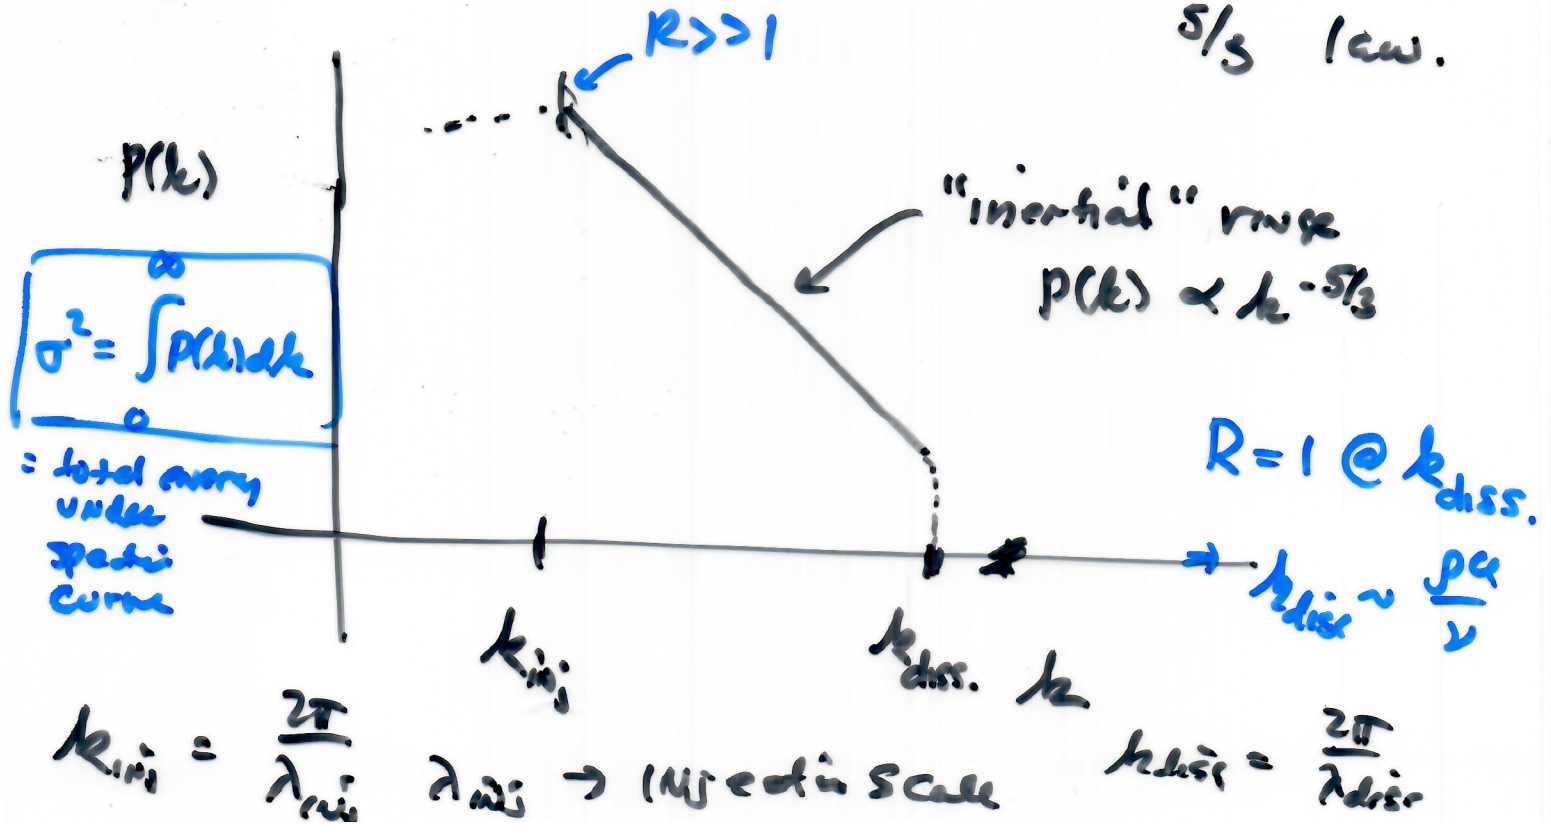 R>>1
5/3 law.
P(k)
"inertial" range
P(k) ∝ k^-5/3
σ² = ∫₀^∞ P(k)dk
= total energy
under
spectral
curve
R=1 @ k_diss.
k_diss ~ ρu/ν
k_inj
k_diss. k
k_inj = 2π/λ_inj λ_inj → injection scale k_diss = 2π/λ_diss